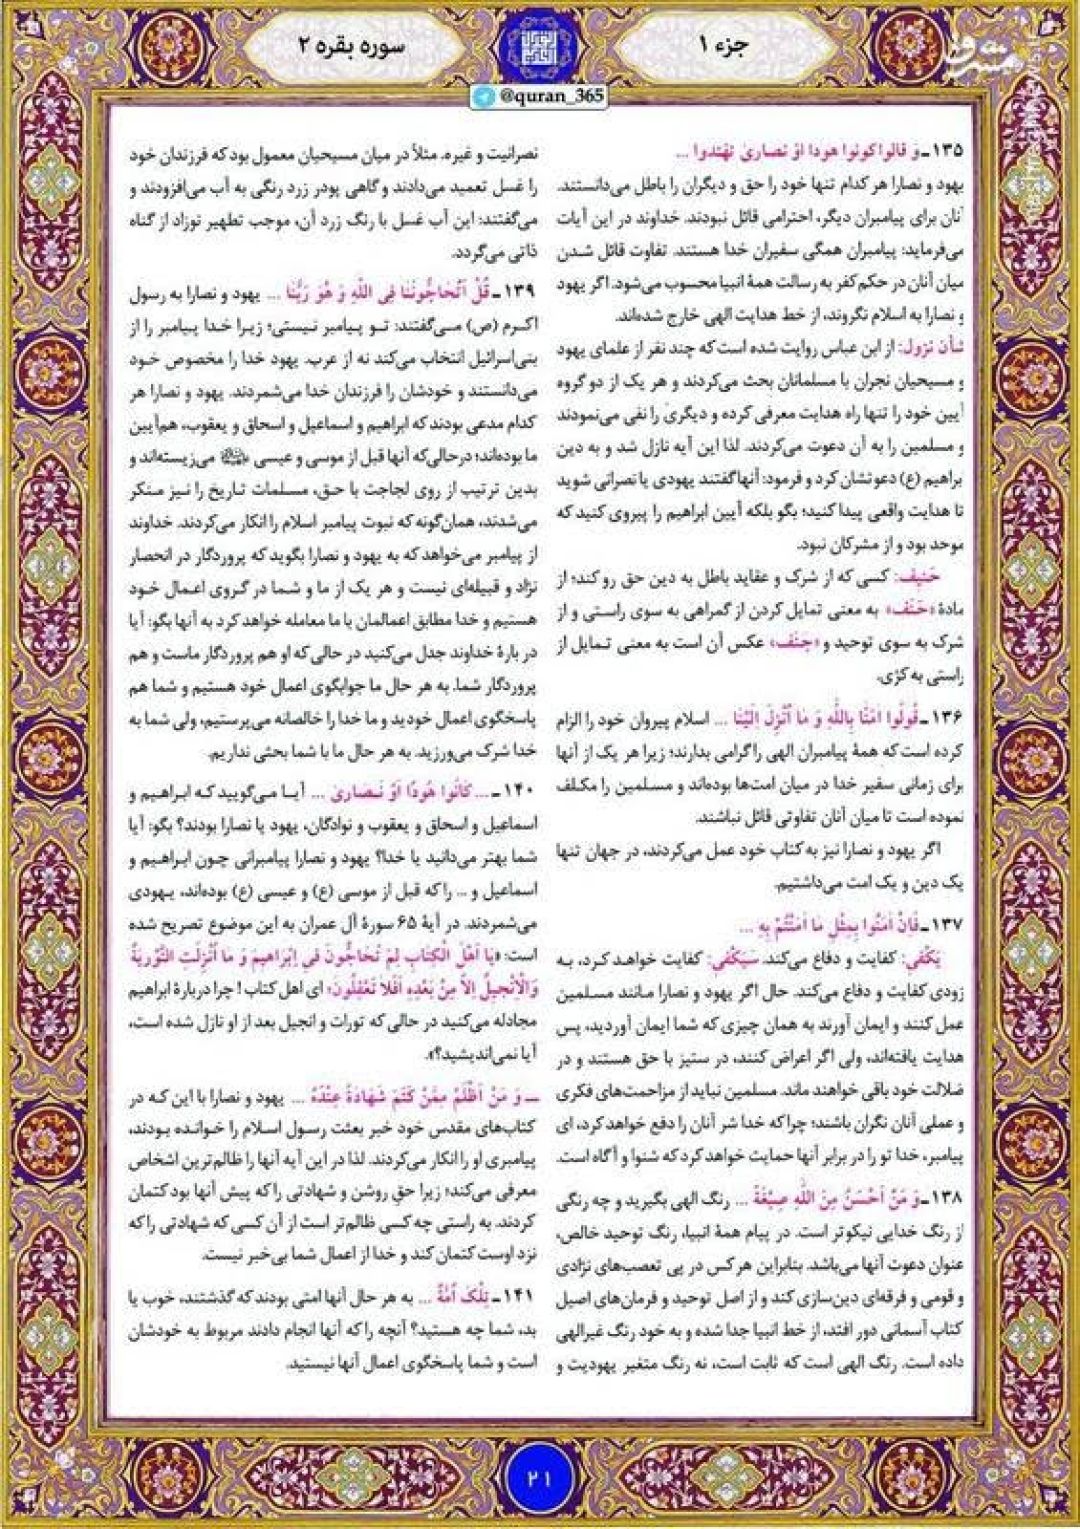 جزء ۱
سوره بقره ۲
@quran_365
۱۳۵ـ وَ قالوا كونوا هودا اَوْ نصاریٰ تَهتَدوا ...
یهود و نصارا هر کدام تنها خود را حق و دیگران را باطل می‌دانستند.
آنان برای پیامبران دیگر، احترامی قائل نبودند. خداوند در این آیات
می‌فرماید: پیامبران همگی سفیران خدا هستند. تفاوت قائل شدن
میان آنان در حکم کفر به رسالت همهٔ انبیا محسوب می‌شود. اگر یهود
و نصارا به اسلام نگروند، از خط هدایت الهی خارج شده‌اند.
شأن نزول: از ابن عباس روایت شده است که چند نفر از علمای یهود
و مسیحیان نجران با مسلمانان بحث می‌کردند و هر یک از دو گروه
آیین خود را تنها راه هدایت معرفی کرده و دیگری را نفی می‌نمودند
و مسلمین را به آن دعوت می‌کردند. لذا این آیه نازل شد و به دین
براهیم (ع) دعوتشان کرد و فرمود: آنها گفتند یهودی یا نصرانی شوید
تا هدایت واقعی پیدا کنید؛ بگو بلکه آیین ابراهیم را پیروی کنید که
موحد بود و از مشرکان نبود.
حَنیف: کسی که از شرک و عقاید باطل به دین حق رو کند؛ از
مادهٔ «حَنَف» به معنی تمایل کردن از گمراهی به سوی راستی و از
شرک به سوی توحید و «جَنَف» عکس آن است به معنی تمایل از
راستی به کژی.
۱۳۶ـ قُولُوا امَنّا بِاللّٰهِ وَ ما اُنْزِلَ اِلَیْنا ... اسلام پیروان خود را الزام
کرده است که همهٔ پیامبران الهی را گرامی بدارند؛ زیرا هر یک از آنها
برای زمانی سفیر خدا در میان امت‌ها بوده‌اند و مسلمین را مکلف
نموده است تا میان آنان تفاوتی قائل نباشند.
اگر یهود و نصارا نیز به کتاب خود عمل می‌کردند، در جهان تنها
یک دین و یک امت می‌داشتیم.
۱۳۷ـ فَاِنْ امَنُوا بِمِثْلِ ما امَنْتُمْ بِهِ ...
یَکْفی: کفایت و دفاع می‌کند. سَیَکْفی: کفایت خواهد کرد، به
زودی کفایت و دفاع می‌کند. حال اگر یهود و نصارا مانند مسلمین
عمل کنند و ایمان آورند به همان چیزی که شما ایمان آوردید، پس
هدایت یافته‌اند، ولی اگر اعراض کنند، در ستیز با حق هستند و در
ضلالت خود باقی خواهند ماند. مسلمین نباید از مزاحمت‌های فکری
و عملی آنان نگران باشند؛ چراکه خدا شر آنان را دفع خواهد کرد، ای
پیامبر، خدا تو را در برابر آنها حمایت خواهد کرد که شنوا و آگاه است.
۱۳۸ـ وَ مَنْ اَحْسَنُ مِنَ اللّٰهِ صِبْغَةً ... رنگ الهی بگیرید و چه رنگی
از رنگ خدایی نیکوتر است. در پیام همهٔ انبیا، رنگ توحید خالص،
عنوان دعوت آنها می‌باشد. بنابراین هر کس در پی تعصب‌های نژادی
و قومی و فرقه‌ای دین‌سازی کند و از اصل توحید و فرمان‌های اصیل
کتاب آسمانی دور افتد، از خط انبیا جدا شده و به خود رنگ غیرالهی
داده است. رنگ الهی است که ثابت است، نه رنگ متغیر یهودیت و
نصرانیت و غیره. مثلاً در میان مسیحیان معمول بود که فرزندان خود
را غسل تعمید می‌دادند و گاهی پودر زرد رنگی به آب می‌افزودند و
می‌گفتند: این آب غسل با رنگ زرد آن، موجب تطهیر نوزاد از گناه
ذاتی می‌گردد.
۱۳۹ـ قُلْ اَتُحاجُّونَنا فِی اللّٰهِ وَ هُوَ رَبُّنا ... یهود و نصارا به رسول
اکرم (ص) می‌گفتند: تو پیامبر نیستی؛ زیرا خدا پیامبر را از
بنی‌اسرائیل انتخاب می‌کند نه از عرب. یهود خدا را مخصوص خود
می‌دانستند و خودشان را فرزندان خدا می‌شمردند. یهود و نصارا هر
کدام مدعی بودند که ابراهیم و اسماعیل و اسحاق و یعقوب، هم‌آیین
ما بوده‌اند؛ درحالی‌که آنها قبل از موسی و عیسی می‌زیسته‌اند و
بدین ترتیب از روی لجاجت با حق، مسلمات تاریخ را نیز منکر
می‌شدند، همان‌گونه که نبوت پیامبر اسلام را انکار می‌کردند. خداوند
از پیامبر می‌خواهد که به یهود و نصارا بگوید که پروردگار در انحصار
نژاد و قبیله‌ای نیست و هر یک از ما و شما در گروی اعمال خود
هستیم و خدا مطابق اعمالمان با ما معامله خواهد کرد به آنها بگو: آیا
در بارهٔ خداوند جدل می‌کنید در حالی که او هم پروردگار ماست و هم
پروردگار شما. به هر حال ما جوابگوی اعمال خود هستیم و شما هم
پاسخگوی اعمال خودید و ما خدا را خالصانه می‌پرستیم، ولی شما به
خدا شرک می‌ورزید. به هر حال ما با شما بحثی نداریم.
۱۴۰ـ ... کانُوا هُودًا اَوْ نَصاریٰ ... آیا می‌گویید که ابراهیم و
اسماعیل و اسحاق و یعقوب و نوادگان، یهود یا نصارا بودند؟ بگو: آیا
شما بهتر می‌دانید یا خدا؟ یهود و نصارا پیامبرانی چون ابراهیم و
اسماعیل و ... را که قبل از موسی (ع) و عیسی (ع) بوده‌اند، یهودی
می‌شمردند. در آیهٔ ۶۵ سورهٔ آل عمران به این موضوع تصریح شده
است: «یا اَهْلَ الْکِتابِ لِمَ تُحاجُّونَ فی اِبْراهیمَ وَ ما اُنْزِلَتِ التَّوْریةُ
وَالْاِنْجیلُ اِلاّ مِنْ بَعْدِهِ اَفَلا تَعْقِلُونَ؛ ای اهل کتاب! چرا دربارهٔ ابراهیم
مجادله می‌کنید در حالی که تورات و انجیل بعد از او نازل شده است،
آیا نمی‌اندیشید؟».
ـ وَ مَنْ اَظْلَمُ مِمَّنْ کَتَمَ شَهادَةً عِنْدَهُ ... یهود و نصارا با این که در
کتاب‌های مقدس خود خبر بعثت رسول اسلام را خوانده بودند،
پیامبری او را انکار می‌کردند. لذا در این آیه آنها را ظالم‌ترین اشخاص
معرفی می‌کند؛ زیرا حق روشن و شهادتی را که پیش آنها بود کتمان
کردند. به راستی چه کسی ظالم‌تر است از آن کسی که شهادتی را که
نزد اوست کتمان کند و خدا از اعمال شما بی‌خبر نیست.
۱۴۱ـ تِلْکَ اُمَّةٌ ... به هر حال آنها امتی بودند که گذشتند، خوب یا
بد، شما چه هستید؟ آنچه را که آنها انجام دادند مربوط به خودشان
است و شما پاسخگوی اعمال آنها نیستید.
۲۱